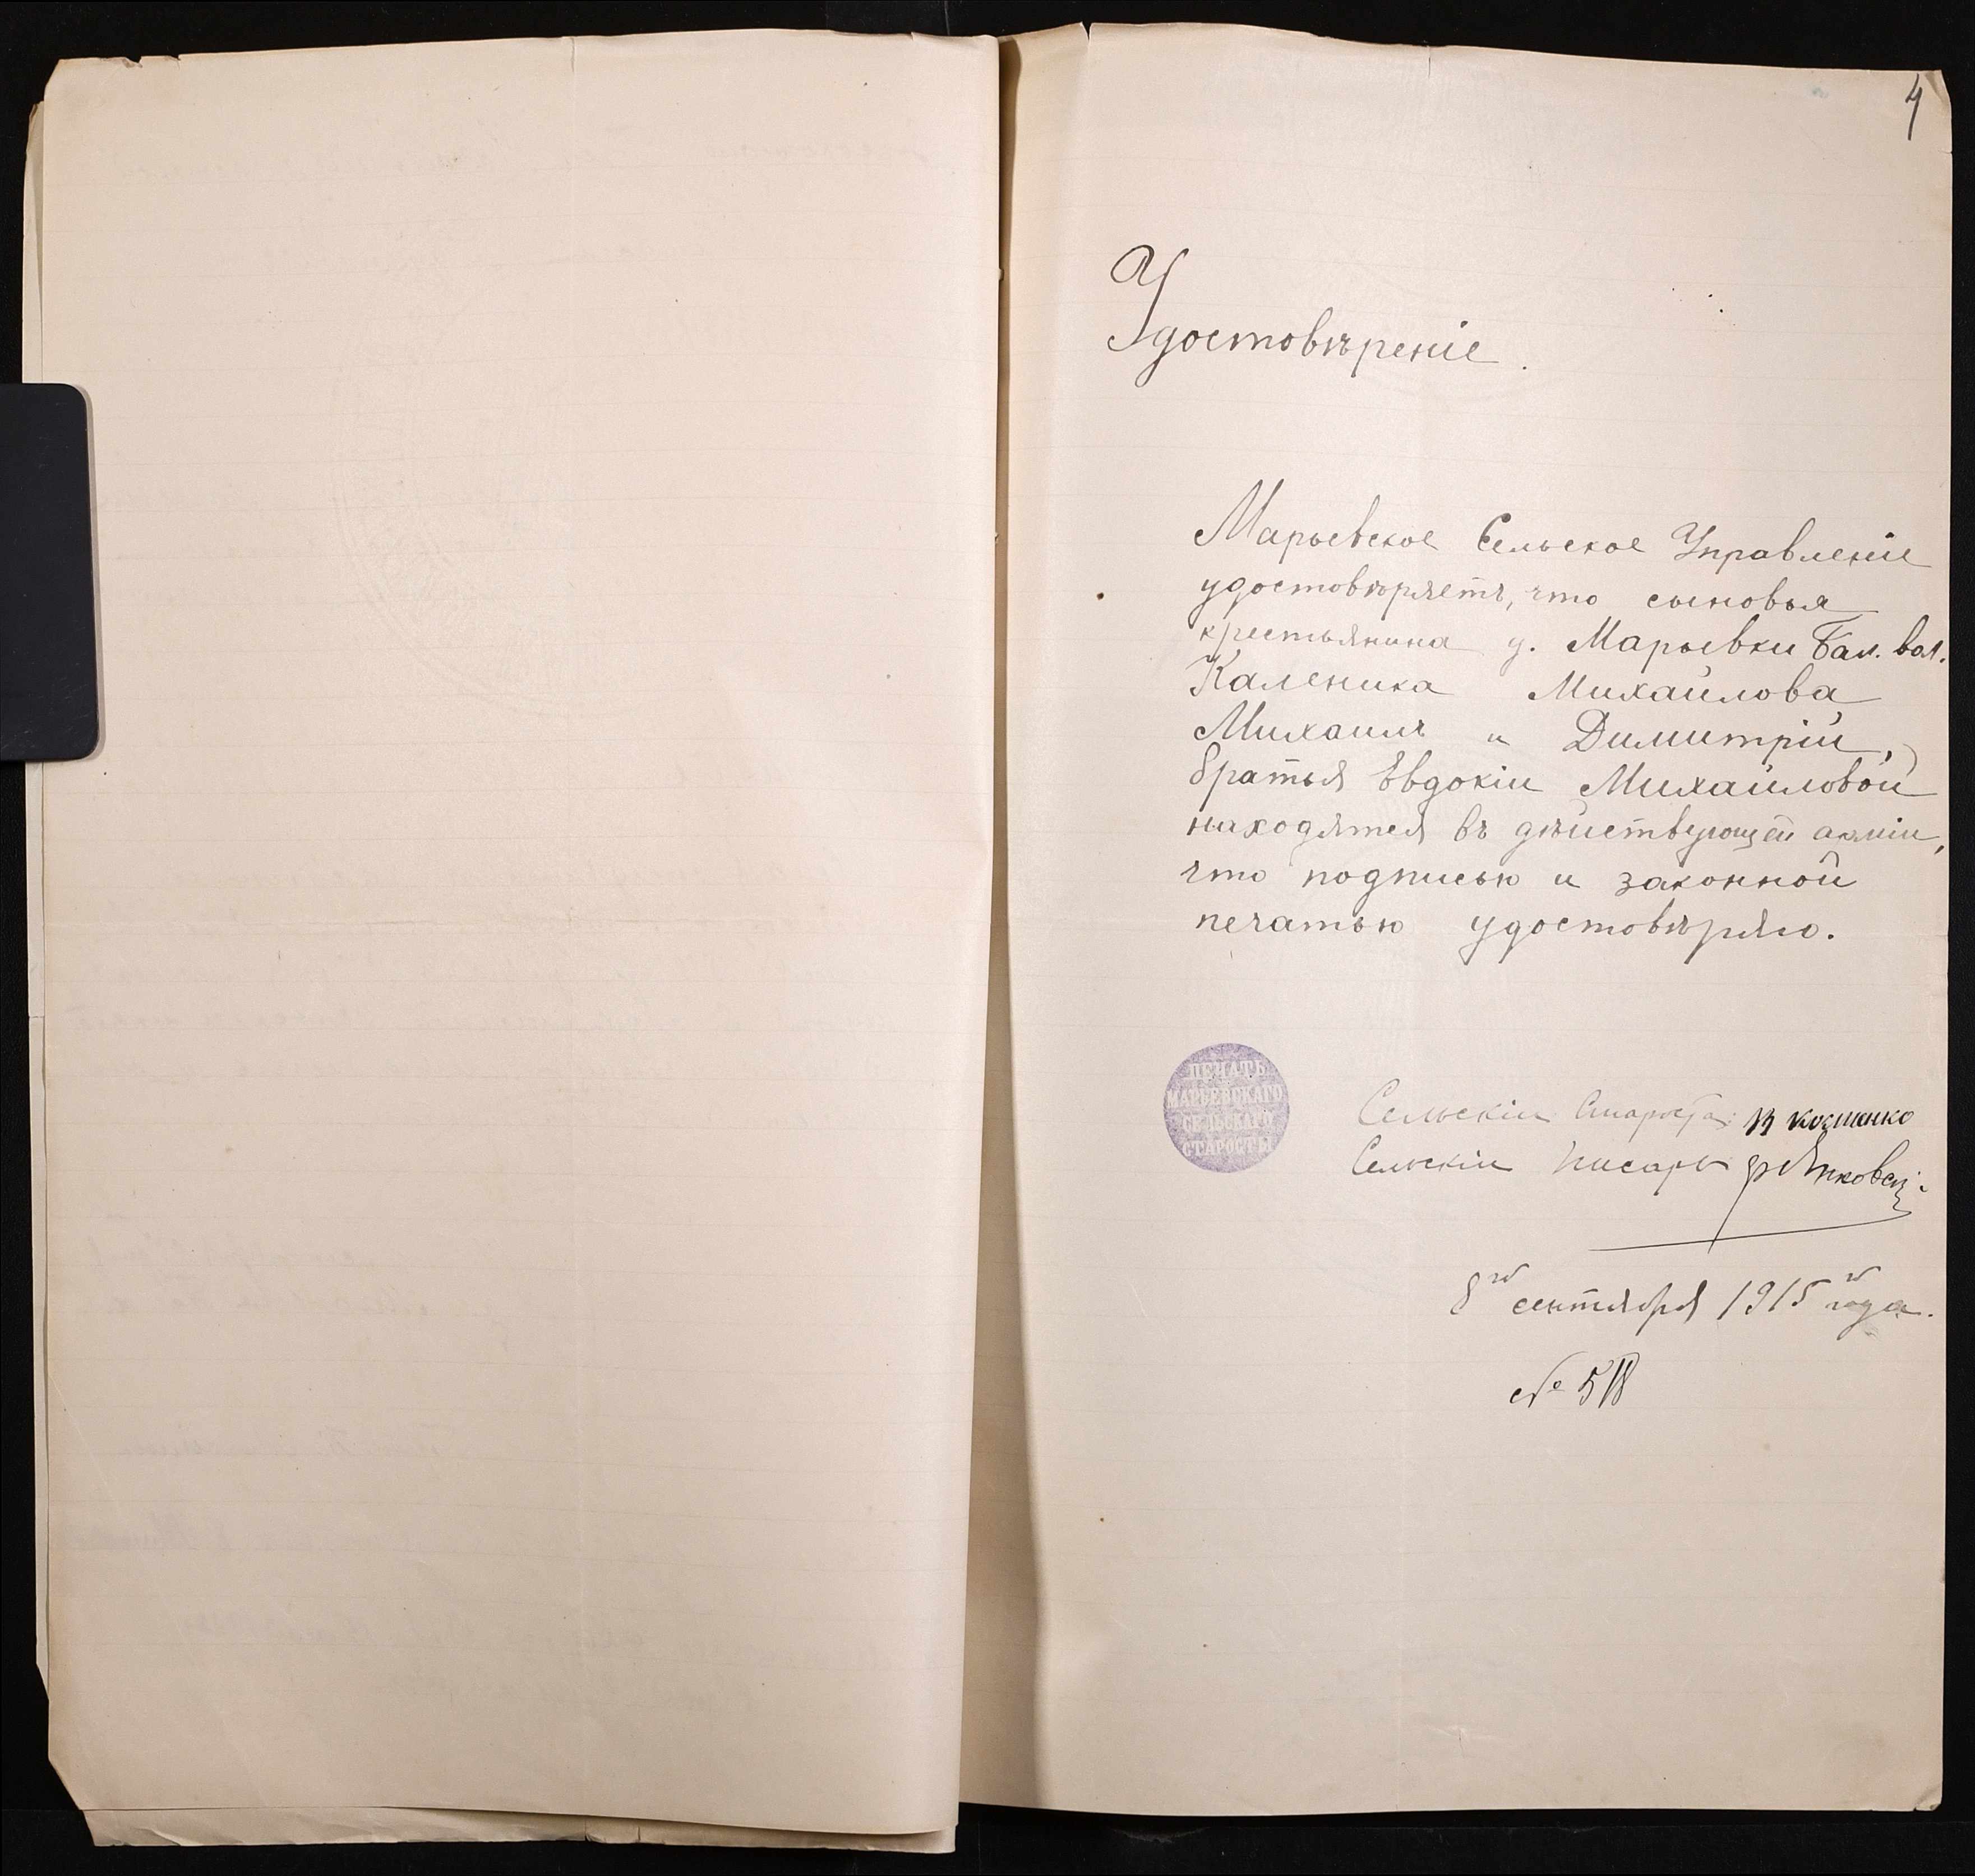 4
Удостовѣреніе.
Марьевское Сельское Управленіе
удостовѣряетъ, что сыновья
крестьянина д. Марьевки Бал. вол.
Каленика Михайлова
Михаилъ и Димитрій,
братья Евдокіи Михайловой
находятся въ дѣйствующей арміи,
что подписью и законной
печатью удостовѣряю.
ПЕЧАТЬ
МАРЬЕВСКАГО
СЕЛЬСКАГО
СТАРОСТЫ
Сельскій Староста
Сельскій Писарь
8го сентября 1915 го года.
№ 518